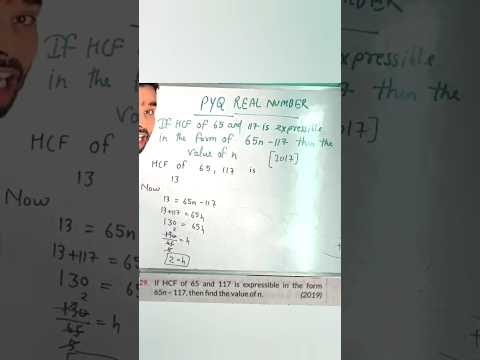 PYQ REAL NUMBER
If HCF of 65 and 117 is expressible
in the form of 65n - 117 then the
value of n [2017]
HCF of 65, 117 is
13
Now
13 = 65n - 117
13 + 117 = 65n
130 = 65n
130 2
65 = n
5
2 = n
29. If HCF of 65 and 117 is expressible in the form
65n – 117, then find the value of n. (2019)
If HCF
in the
HCF of
13
Now
13 = 65n
13 + 117 = 65
130 = 65
2
130
65 = n
5
expressible
then the
017]